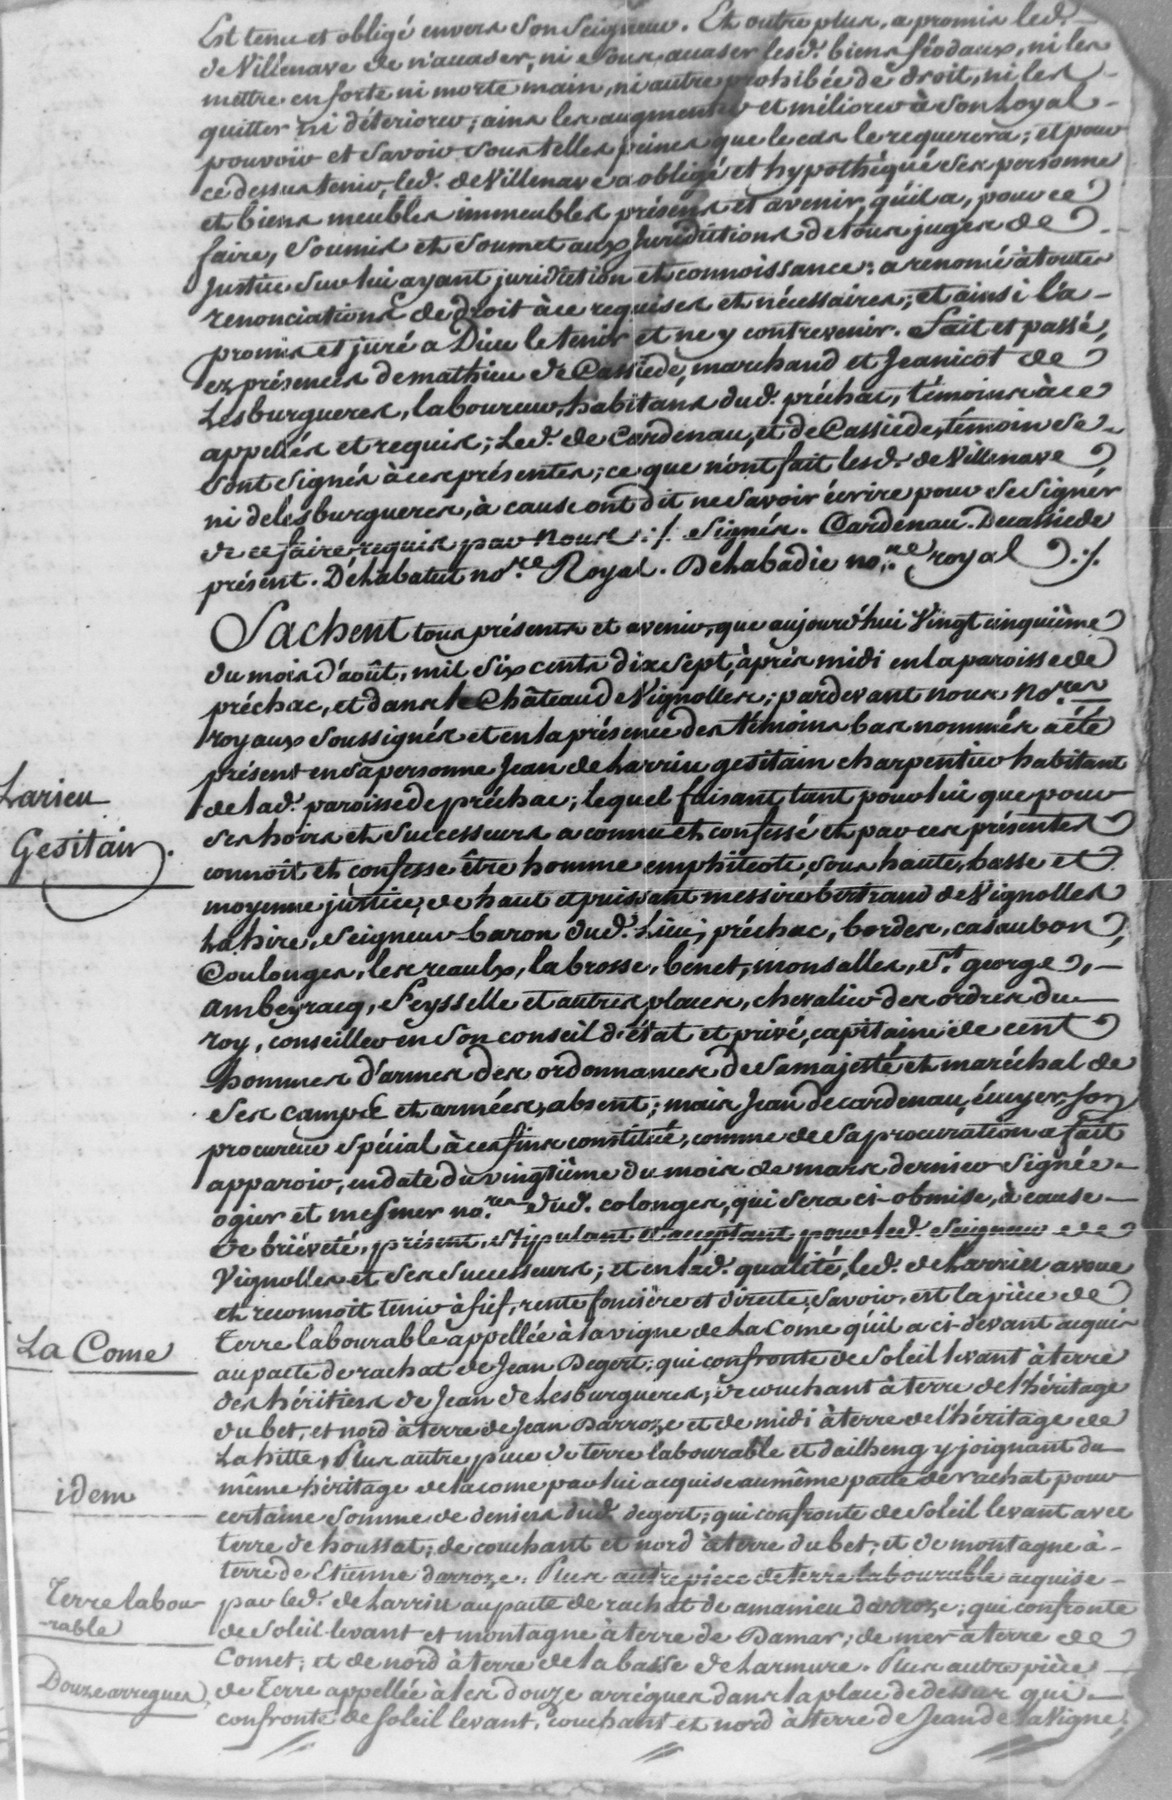 Est tenu et obligé envers son seigneur. Et outre plus, a promis led.
de Villenave de n'acaser, ni sous acaser lesd. biens féodaux, ni les
mettre en forte ni morte main, ni autre prohibée de droit, ni les
quitter ni déteriorer; ains les augmenter et méliorer à son Loyal
pouvoir et savoir sous telles peines que le cas le requerera; et pour
ce dessus tenir, led. de Villenave a obligé et hypothéqué ses personne
et biens meubles immeubles présens et avenir, qu'il a, pour ce
faire, soumis et soumet aux Juridictions de tous juges de
Justice sur lui ayant juridiction et connoissance; a renoncé à toutes
renonciations de droit à ce requises et nécessaires; et ainsi l'a
promis et juré a Dieu le tenir et ne y contrevenir. Fait et passé,
ez présences de mathieu de Cassiede, marchand et Jeanicot de
Lesburgueres, laboureur, habitans dud. préchac, témoins à ce
appellés et requis; Led. de Cardenau, et de Cassiede, témoin se
sont signés à ces présentes; ce que n'ont fait lesd. de Villenave
ni de lesburgueres, à cause ont dit ne savoir écrire pour se signér
de ce faire requis par nous :/. signés. Cardenau. Decassiede
présent. Délabatut no.re Royal. Delabadie no.re royal :/.
Sachent tous présents et avenir, que aujourd'hui Vingt cinquième
du mois d'août, mil six cents dix sept, après midi en la paroisse de
préchac, et dans le Château de Vignolles; pardevant nous No.res
royaux soussignés et en la présence des témoins bas nommés a été
présent en sa personne Jean de Larrieu gesitain charpentier habitant
de lad. paroisse de préchac; lequel faisant tant pour lui que pour
ses hoirs et successeurs a connu et confessé et par ces présentes
connoît et confesse être homme emphiteote, sous haute, basse et
moyenne justice, de haut et puissant messire bertrand de Vignolles
Lahire, Seigneur baron dud. Lieu, préchac, bordes, casaubon,
Coulonges, les reaulx, labrosse, benet, monsalles, St. george,
ambeyracq, Feysselle et autres places, chevalier des ordres du
roy, conseiller en son conseil d'état et privé, capitaine de cent
hommes d'armes des ordonnances de sa majesté et maréchal de
ses camps et armées, absent; mais Jean de cardenau, écuyer son
procureur spécial à ces fins constitué, comme de sa procuration a fait
apparoir, en date du vingtième du mois de mars dernier signée
ogier et mesmer no.res dud. colonges, qui sera ci-obmise, à cause
de briéveté, présent, stipulant et acceptant pour led. Seigneur de
Vignolles et ses successeurs; et en lad. qualité, led. de Larrieu avoue
et reconnoit tenir à fief, rente foncière et directe, savoir, est la pièce de
terre labourable appellée à la vigne de La Come qu'il a ci-devant acquis
au pacte de rachat de Jean Degert; qui confronte de soleil levant à terre
des héritiers de Jean de Lesburgueres; de couchant à terre de l'héritage
du bet, et nord à terre de Jean Darroze et de midi à terre de l'héritage de
Lahitte, Plus autre pièce de terre labourable et dailheng y joignant du
même héritage de lacome par lui acquise au même pacte de rachat pour
certaine somme de deniers dud. degert; qui confronte de soleil levant avec
terre de houssat; de couchant et nord à terre du bet; et de montagne à
terre de Etienne darroze. Plus autre pièce de terre labourable acquise
par led. de Larrieu au pacte de rachat de amanieu darroze; qui confronte
de soleil levant et montagne à terre de Damar; de mer à terre de
Comet; et de nord à terre de labasse de Larmure. Plus autre pièce
de Terre appellée à les douze arrégues dans la place de dessar qui
confronte de soleil levant, couchant et nord à terre de Jean de laVigne;
Larieu
Gesitain.
La Come
idem
Terre labou-
-rable
Douze arregues